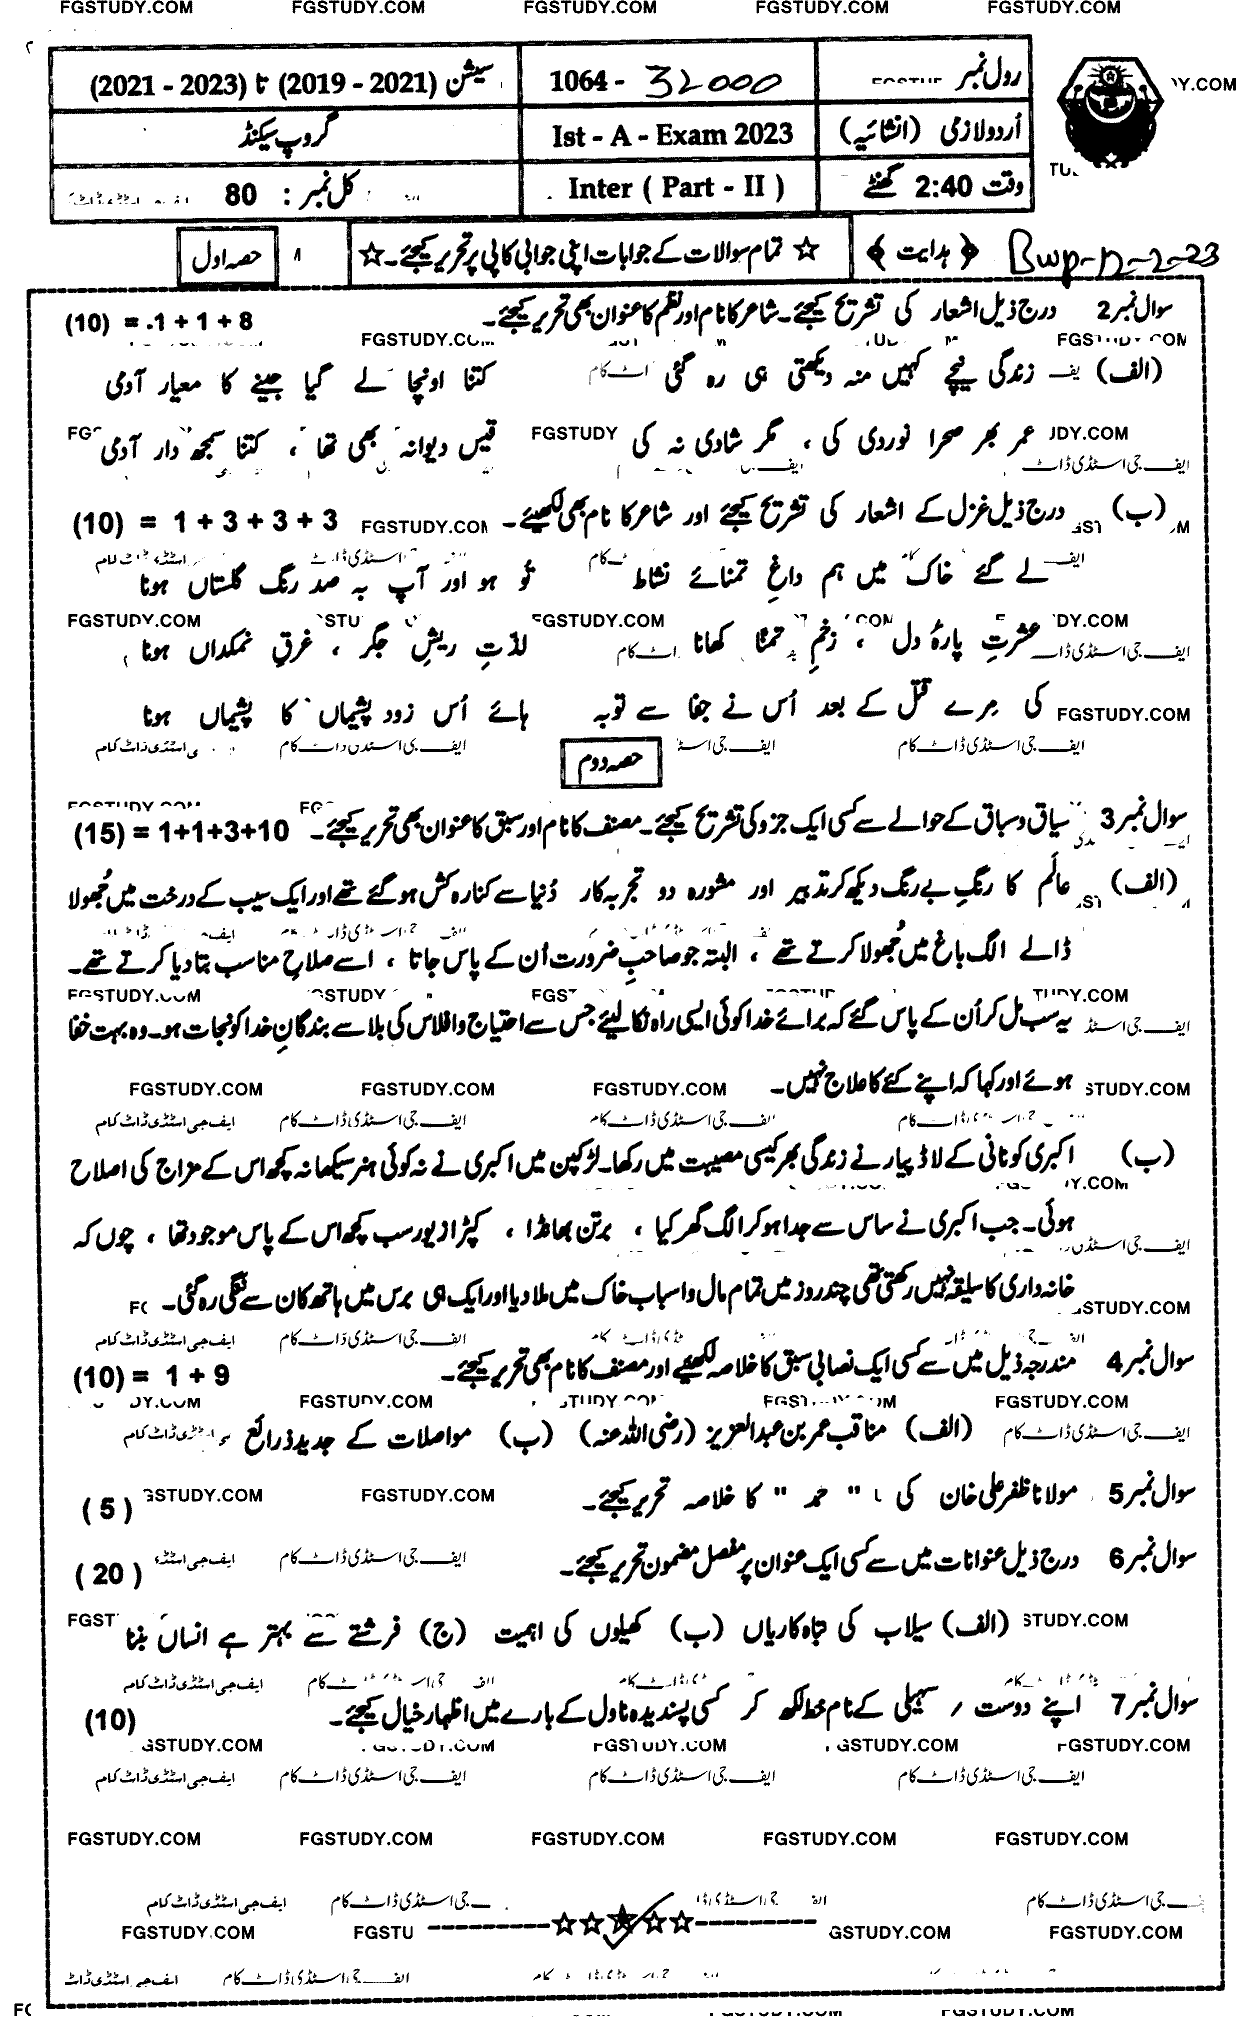 FGSTUDY.COM FGSTUDY.COM FGSTUDY.COM FGSTUDY.COM FGSTUDY.COM
رول نمبر 1064 - 32000 سیشن (2019 - 2021) تا (2021 - 2023)
اُردو لازمی (انشائیہ) Ist - A - Exam 2023 گروپ سیکنڈ
وقت 2:40 گھنٹے Inter ( Part - II ) کل نمبر : 80
Bwp-12-2-23 ﴿ ہدایت ﴾ ☆ تمام سوالات کے جوابات اپنی جوابی کاپی پر تحریر کیجئے۔ ☆ حصہ اول
سوال نمبر 2 درج ذیل اشعار کی تشریح کیجئے۔ شاعر کا نام اور نظم کا عنوان بھی تحریر کیجئے۔ (10) = 1 + 1 + 8
(الف) زندگی نیچے کہیں منہ دیکھتی ہی رہ گئی کتنا اونچا لے گیا جینے کا معیار آدمی
عمر بھر صحرا نوردی کی ، مگر شادی نہ کی قیس دیوانہ بھی تھا ، کتنا سمجھ دار آدمی
(ب) درج ذیل غزل کے اشعار کی تشریح کیجئے اور شاعر کا نام بھی لکھیئے۔ (10) = 1 + 3 + 3 + 3
لے گئے خاک میں ہم داغِ تمنائے نشاط تُو ہو اور آپ بہ صد رنگ گلستاں ہونا
عشرتِ پارۂ دل ، زخمِ تمنّا کھانا لذّتِ ریشِ جگر ، غرقِ نمکداں ہونا
کی مِرے قتل کے بعد اُس نے جفا سے توبہ ہائے اُس زود پشیماں کا پشیماں ہونا
حصہ دوم
سوال نمبر 3 سیاق و سباق کے حوالے سے کسی ایک جزو کی تشریح کیجئے۔ مصنف کا نام اور سبق کا عنوان بھی تحریر کیجئے۔ (15) = 1+1+3+10
(الف) عالَم کا رنگِ بے رنگ دیکھ کر تدبیر اور مشورہ دو تجربہ کار دُنیا سے کنارہ کش ہو گئے تھے اور ایک سیب کے درخت میں جُھولا
ڈالے الگ باغ میں جُھولا کرتے تھے ، البتہ جو صاحبِ ضرورت اُن کے پاس جاتا ، اسے صلاحِ مناسب بتا دیا کرتے تھے۔
یہ سب مل کر اُن کے پاس گئے کہ برائے خدا کوئی ایسی راہ نکالیئے جس سے احتیاج و افلاس کی بلا سے بندگانِ خدا کو نجات ہو۔ وہ بہت خفا
ہوئے اور کہا کہ اپنے کئے کا علاج نہیں۔
(ب) اکبری کو نانی کے لاڈ پیار نے زندگی بھر کیسی مصیبت میں رکھا۔ لڑکپن میں اکبری نے نہ کوئی ہنر سیکھا نہ کچھ اس کے مزاج کی اصلاح
ہوئی۔ جب اکبری نے ساس سے جدا ہو کر الگ گھر کیا ، برتن بھانڈا ، کپڑا زیور سب کچھ اس کے پاس موجود تھا ، چوں کہ
خانہ داری کا سلیقہ نہیں رکھتی تھی چند روز میں تمام مال و اسباب خاک میں ملا دیا اور ایک ہی برس میں ہاتھ کان سے ننگی رہ گئی۔
سوال نمبر 4 مندرجہ ذیل میں سے کسی ایک نصابی سبق کا خلاصہ لکھیئے اور مصنف کا نام بھی تحریر کیجئے۔ (10) = 1 + 9
(الف) مناقب عمر بن عبدالعزیز (رضی اللہ عنہ) (ب) مواصلات کے جدید ذرائع
سوال نمبر 5 مولانا ظفر علی خان کی " حمد " کا خلاصہ تحریر کیجئے۔ ( 5 )
سوال نمبر 6 درج ذیل عنوانات میں سے کسی ایک عنوان پر مفصل مضمون تحریر کیجئے۔ ( 20 )
(الف) سیلاب کی تباہ کاریاں (ب) کھیلوں کی اہمیت (ج) فرشتے سے بہتر ہے انسان بننا
سوال نمبر 7 اپنے دوست / سہیلی کے نام خط لکھ کر کسی پسندیدہ ناول کے بارے میں اظہار خیال کیجئے۔ (10)
GSTUDY.COM GSTUDY.COM
ایف جی اسٹڈی ڈاٹ کام ایف جی اسٹڈی ڈاٹ کام ایف جی اسٹڈی ڈاٹ کام ایف جی اسٹڈی ڈاٹ کام
FGSTUDY.COM FGSTUDY.COM FGSTUDY.COM FGSTUDY.COM FGSTUDY.COM
FGSTUDY.COM FGSTU ☆☆☆☆☆ GSTUDY.COM FGSTUDY.COM